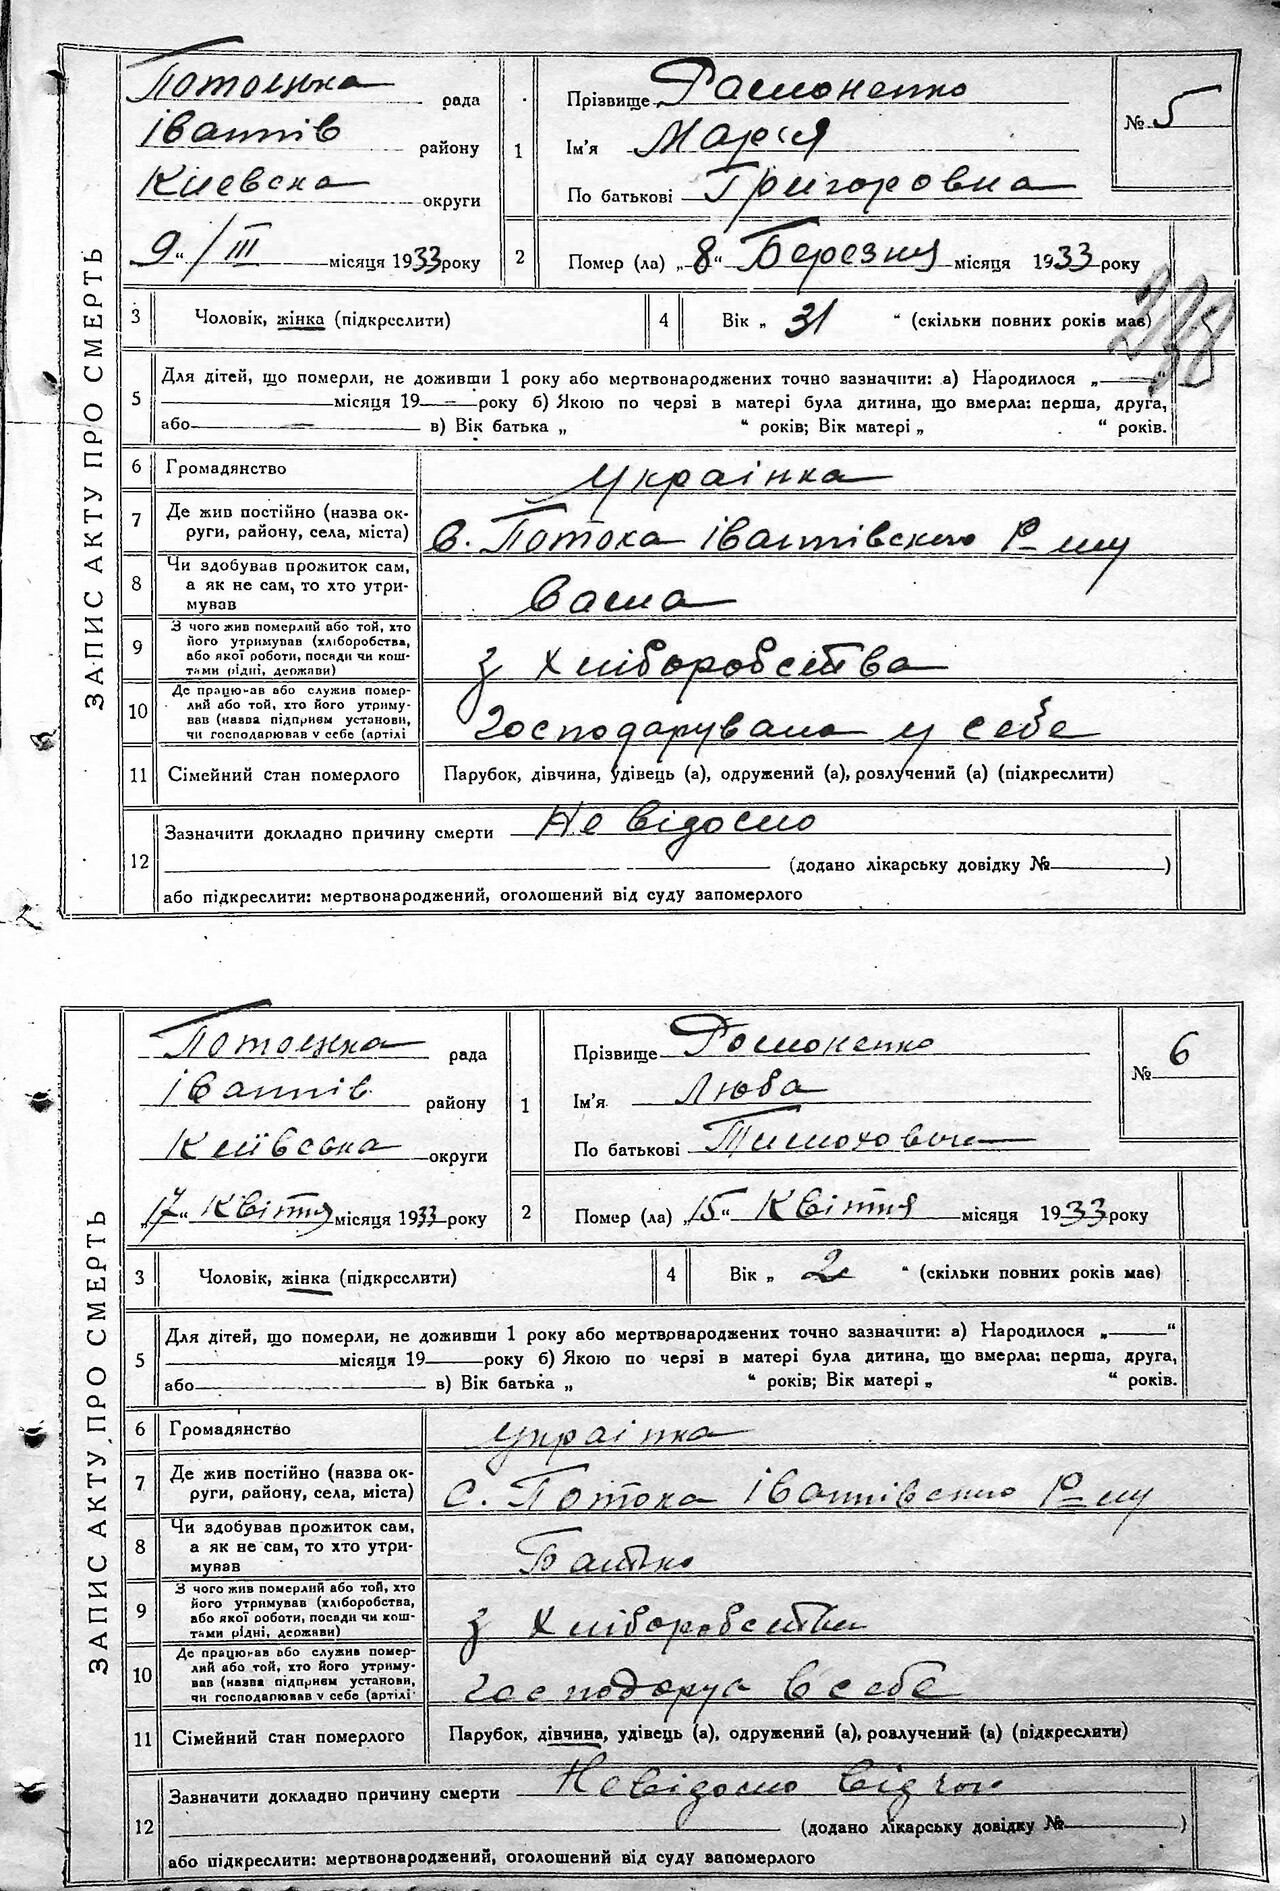 ЗАПИС АКТУ ПРО СМЕРТЬ
Потоцька рада
Іванків району
Киевска округи
9 " / III місяця 1933 року
1 Прізвище Рамоненко
Ім'я Марія
По батькові Григоровна
№ 5
2 Помер (ла) „ 8 “ Березня місяця 1933 року
3 Чоловік, жінка (підкреслити)
4 Вік „ 31 “ (скільки повних років має)
338
5 Для дітей, що померли, не доживши 1 року або мертвонароджених точно зазначити: а) Народилося „
місяця 19 — року б) Якою по черзі в матері була дитина, що вмерла: перша, друга,
або — в) Вік батька „ “ років; Вік матері „ “ років.
6 Громадянство Українка
7 Де жив постійно (назва ок-
руги, району, села, міста) в. Потока Іванківского Р-ну
8 Чи здобував прожиток сам,
а як не сам, то хто утри-
мував Сама
9 З чого жив померлий або той, хто
його утримував (хліборобства,
або якої роботи, посади чи кош-
тами рідні, держави) з Хліборобства
10 Де працював або служив помер-
лий або той, хто його утриму-
вав (назва підприєм установи,
чи господарював у себе (артілі господарувала у себе
11 Сімейний стан померлого Парубок, дівчина, удівець (а), одружений (а), розлучений (а) (підкреслити)
12 Зазначити докладно причину смерти Не відомо
(додано лікарську довідку № )
або підкреслити: мертвонароджений, оголошений від суду запомерлого
ЗАПИС АКТУ ПРО СМЕРТЬ
Потоцька рада
Іванків району
Київська округи
„17“ Квітня місяця 1933 року
1 Прізвище Ромоненко
Ім'я Люба
По батькові Тимоховна
№ 6
2 Помер (ла) „15“ Квітня місяця 1933 року
3 Чоловік, жінка (підкреслити)
4 Вік „ 2 “ (скільки повних років має)
5 Для дітей, що померли, не доживши 1 року або мертвонароджених точно зазначити: а) Народилося „ — “
місяця 19 — року б) Якою по черзі в матері була дитина, що вмерла: перша, друга,
або — в) Вік батька „ “ років; Вік матері „ “ років.
6 Громадянство Українка
7 Де жив постійно (назва ок-
руги, району, села, міста) С. Потока Іванківского Р-ну
8 Чи здобував прожиток сам,
а як не сам, то хто утри-
мував Батько
9 З чого жив померлий або той, хто
його утримував (хліборобства,
або якої роботи, посади чи кош-
тами рідні, держави) з Хліборобства
10 Де працював або служив помер-
лий або той, хто його утриму-
вав (назва підприєм установи,
чи господарював у себе (артілі господарує в себе
11 Сімейний стан померлого Парубок, дівчина, удівець (а), одружений (а), розлучений (а) (підкреслити)
12 Зазначити докладно причину смерти Невідомо від чого
(додано лікарську довідку № )
або підкреслити: мертвонароджений, оголошений від суду запомерлого